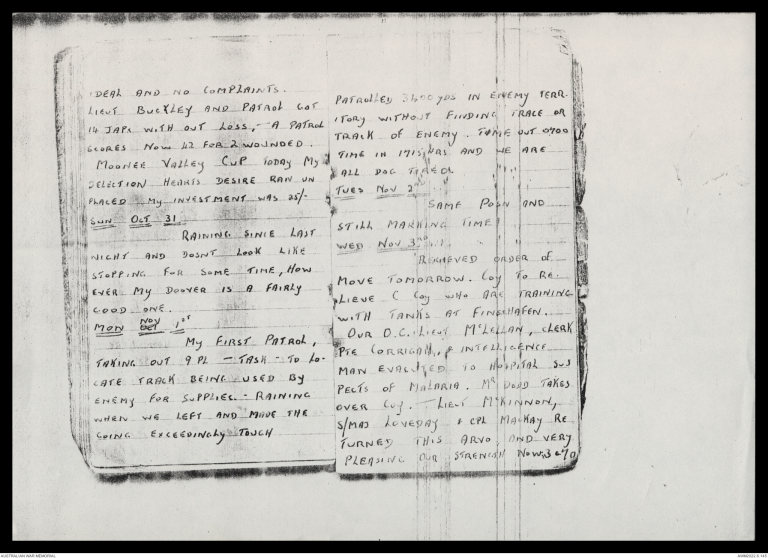 IDEAL AND NO COMPLAINTS.
LIEUT BUCKLEY AND PATROL GOT
14 JAPS WITH OUT LOSS, - A PATROL
SCORES NOW 42 FOR 2 WOUNDED.
MOONEE VALLEY CUP TODAY MY
SELECTION HEARTS DESIRE RAN UN
PLACED MY INVESTMENT WAS 25/-
SUN OCT 31
RAINING SINCE LAST
NIGHT AND DOSNT LOOK LIKE
STOPPING FOR SOME TIME, HOW
EVER MY DOOVER IS A FAIRLY
GOOD ONE.
MON NOV OCT 1ST
MY FIRST PATROL,
TAKING OUT 9 PL - TASK - TO LO-
CATE TRACK BEING USED BY
ENEMY FOR SUPPLIES - RAINING
WHEN WE LEFT AND MADE THE
GOING EXCEEDINGLY TOUGH
PATROLLED YDS IN ENEMY TERR-
ITORY WITHOUT FINDING TRACE OR
TRACK OF ENEMY. TIME OUT 0700
TIME IN 1715 HRS AND WE ARE
ALL DOG TIRED.
TUES NOV 2ND
SAME POSN AND
STILL MARKING TIME
WED NOV 3RD
RECIEVED ORDER OF
MOVE TOMORROW. COY TO RE-
LIEVE C COY WHO ARE TRAINING
WITH TANKS AT FINSHAFEN.
OUR O.C. LIEUT McLELLAN, CLERK
PTE CORRIGAN, & INTELLIGENCE
MAN EVACUTED TO HOSPITAL SUS
PECTS OF MALARIA. MR DODD TAKES
OVER COY. - LIEUT McKINNON,
S/MAJ LOVEDAY & CPL MACKAY RE
TURNED THIS ARVO, AND VERY
PLEASING OUR STRENGTH NOW
AUSTRALIAN WAR MEMORIAL